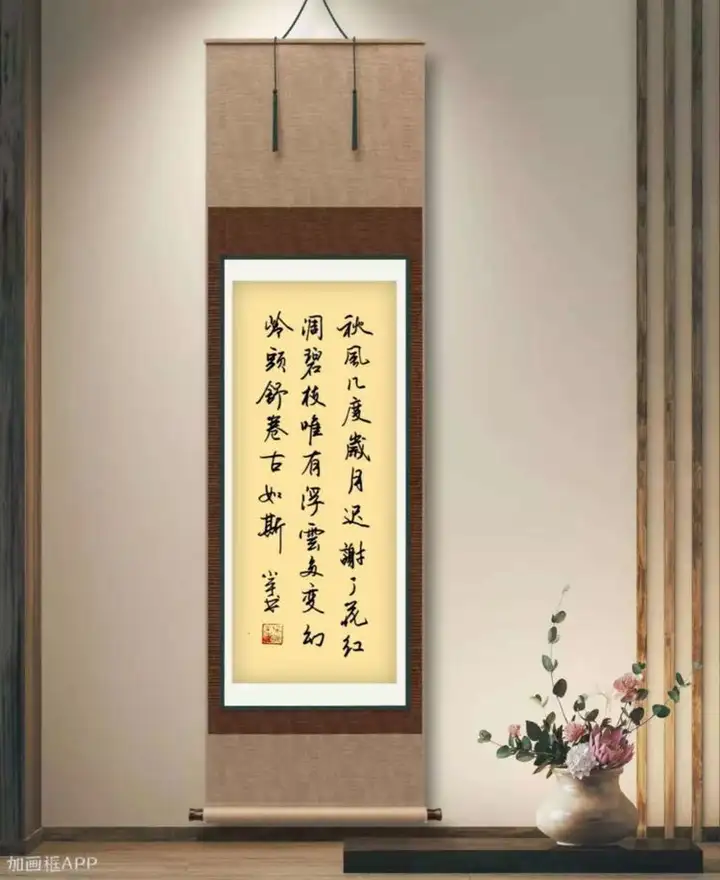 秋風几度歲月迟謝了花紅
凋碧枝唯有浮雲多变幻
岭頭舒卷古如斯
加画框APP